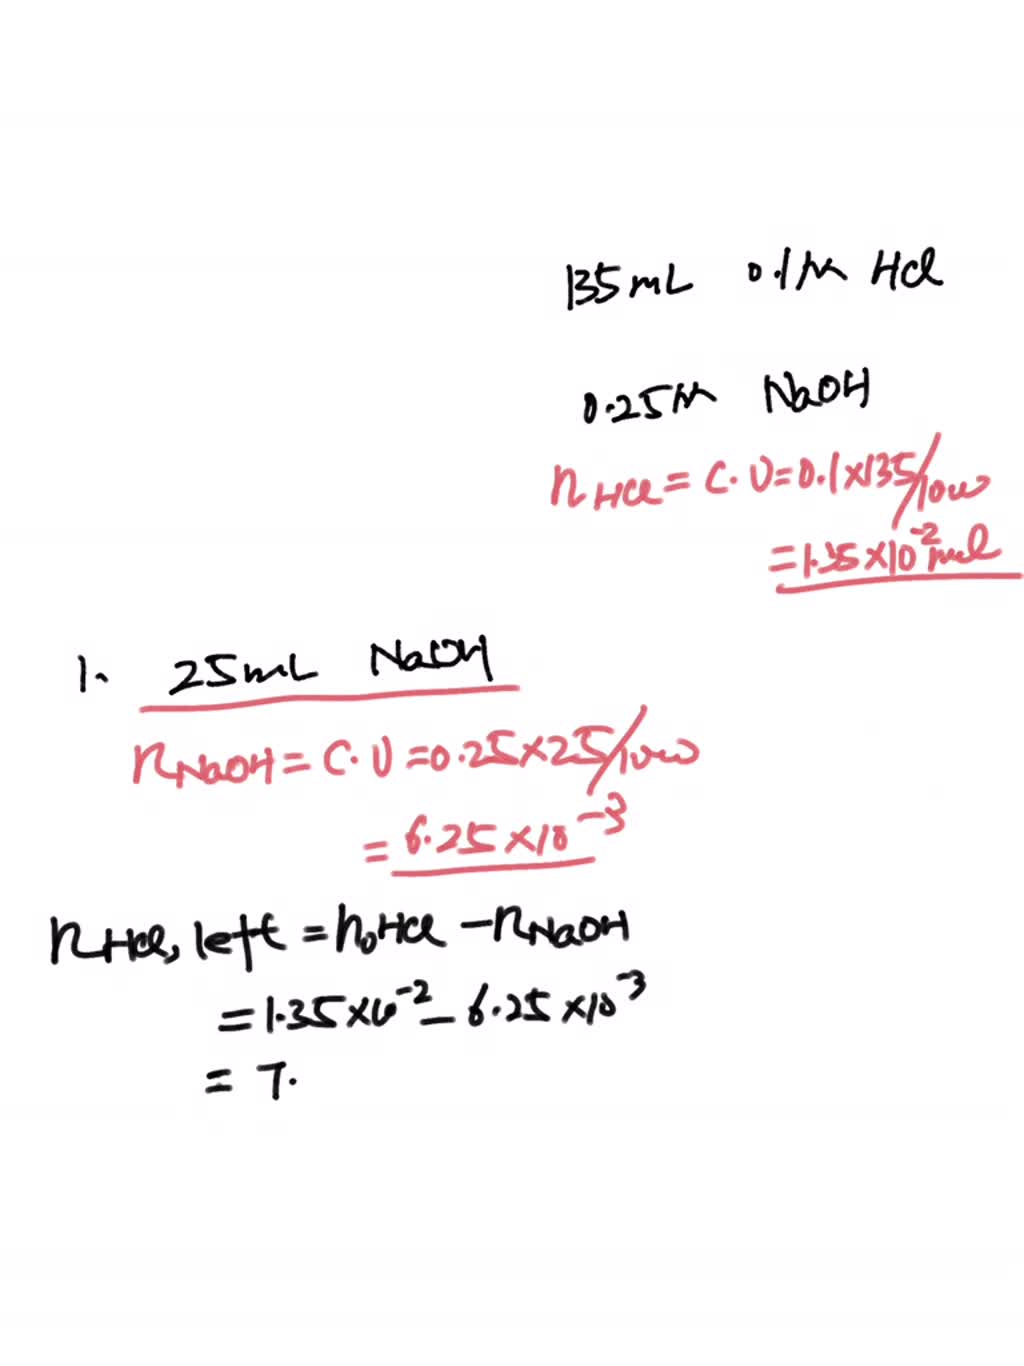 135mL 0.1M HCl
0.25M NaOH
nHCl = C.V=0.1×135/1000
=1.35×10⁻²mol
1. 25mL NaOH
nNaOH = C.V =0.25×25/1000
= 6.25×10⁻³
nHCl, left = n₀HCl - nNaOH
= 1.35×10⁻² - 6.25×10⁻³
= 7.